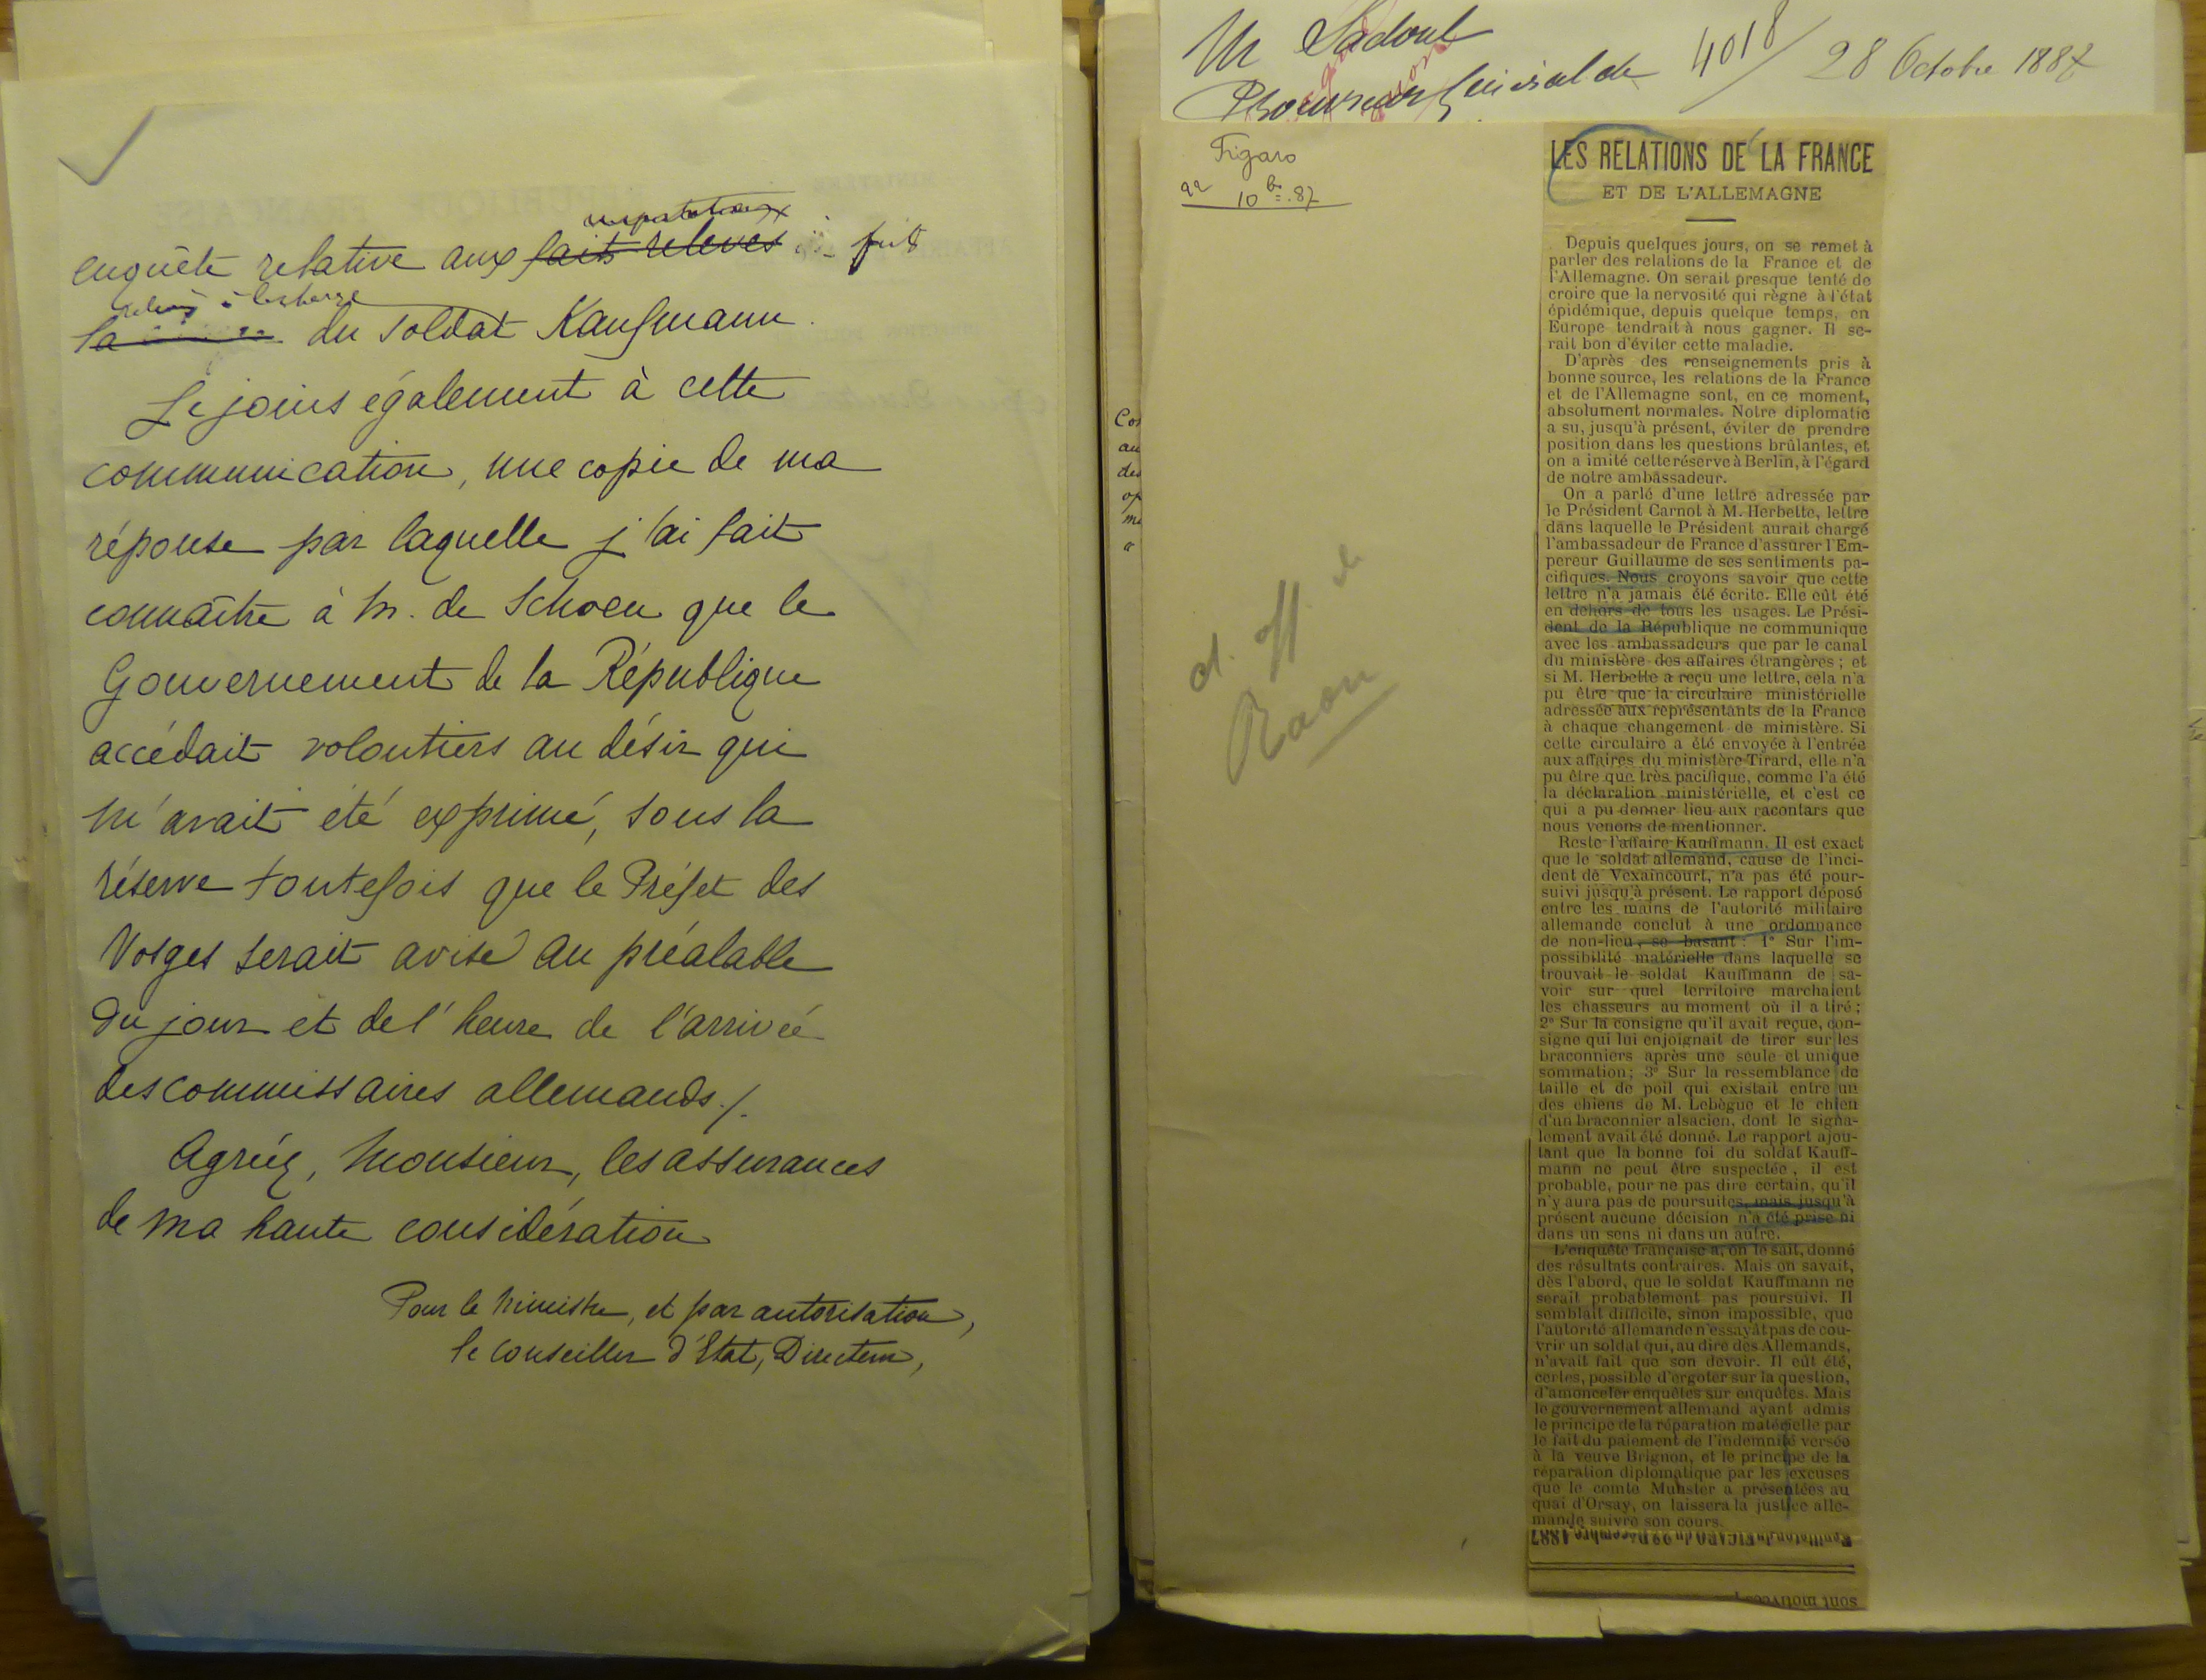 enquête relative aux faits relevés faits
imputations
relevés à la charge
la du soldat Kaufmann.
Je joins également à cette
communication, une copie de ma
réponse par laquelle j'ai fait
connaître à M. de Schoen que le
Gouvernement de la République
accédait volontiers au désir qui
m'avait été exprimé, sous la
réserve toutefois que le Préfet des
Vosges serait avisé au préalable
du jour et de l'heure de l'arrivée
des commissaires allemands./.
Agréez, Monsieur, les assurances
de ma haute considération
Pour le Ministre, et par autorisation,
le Conseiller d'Etat, Directeur,
Mr Sadoul
Procureur Général de 4018/ 28 Octobre 1887
Figaro
22 10bre.87
Raon
LES RELATIONS DE LA FRANCE
ET DE L'ALLEMAGNE
Depuis quelques jours, on se remet à
parler des relations de la France et de
l'Allemagne. On serait presque tenté de
croire que la nervosité qui règne à l'état
épidémique, depuis quelque temps, en
Europe tendrait à nous gagner. Il se-
rait bon d'éviter cette maladie.
D'après des renseignements pris à
bonne source, les relations de la France
et de l'Allemagne sont, en ce moment,
absolument normales. Notre diplomatie
a su, jusqu'à présent, éviter de prendre
position dans les questions brûlantes, et
on a imité cette réserve à Berlin, à l'égard
de notre ambassadeur.
On a parlé d'une lettre adressée par
le Président Carnot à M. Herbette, lettre
dans laquelle le Président aurait chargé
l'ambassadeur de France d'assurer l'Em-
pereur Guillaume de ses sentiments pa-
cifiques. Nous croyons savoir que cette
lettre n'a jamais été écrite. Elle eût été
en dehors de tous les usages. Le Prési-
dent de la République ne communique
avec les ambassadeurs que par le canal
du ministère des affaires étrangères ; et
si M. Herbette a reçu une lettre, cela n'a
pu être que la circulaire ministérielle
adressée aux représentants de la France
à chaque changement de ministère. Si
cette circulaire a été envoyée à l'entrée
aux affaires du ministère Tirard, elle n'a
pu être que très pacifique, comme l'a été
la déclaration ministérielle, et c'est ce
qui a pu donner lieu aux racontars que
nous venons de mentionner.
Reste l'affaire Kauffmann. Il est exact
que le soldat allemand, cause de l'inci-
dent de Vexaincourt, n'a pas été pour-
suivi jusqu'à présent. Le rapport déposé
entre les mains de l'autorité militaire
allemande conclut à une ordonnance
de non-lieu, se basant : 1° Sur l'im-
possibilité matérielle dans laquelle se
trouvait le soldat Kauffmann de sa-
voir sur quel territoire marchaient
les chasseurs au moment où il a tiré ;
2° Sur la consigne qu'il avait reçue, con-
signe qui lui enjoignait de tirer sur les
braconniers après une seule et unique
sommation ; 3° Sur la ressemblance de
taille et de poil qui existait entre un
des chiens de M. Lebègue et le chien
d'un braconnier alsacien, dont le signa-
lement avait été donné. Le rapport ajou-
tant que la bonne foi du soldat Kauff-
mann ne peut être suspectée, il est
probable, pour ne pas dire certain, qu'il
n'y aura pas de poursuites, mais jusqu'à
présent aucune décision n'a été prise ni
dans un sens ni dans un autre.
L'enquête française a, on le sait, donné
des résultats contraires. Mais on savait,
dès l'abord, que le soldat Kauffmann ne
serait probablement pas poursuivi. Il
semblait difficile, sinon impossible, que
l'autorité allemande n'essayât pas de cou-
vrir un soldat qui, au dire des Allemands,
n'avait fait que son devoir. Il eût été,
certes, possible d'ergoter sur la question,
d'amonceler enquêtes sur enquêtes. Mais
le gouvernement allemand ayant admis
le principe de la réparation matérielle par
le fait du paiement de l'indemnité versée
à la veuve Brignon, et le principe de la
réparation diplomatique par les excuses
que le comte Munster a présentées au
quai d'Orsay, on laissera la justice alle-
mande suivre son cours.
Feuilleton du FIGARO du 22 Décembre 1887